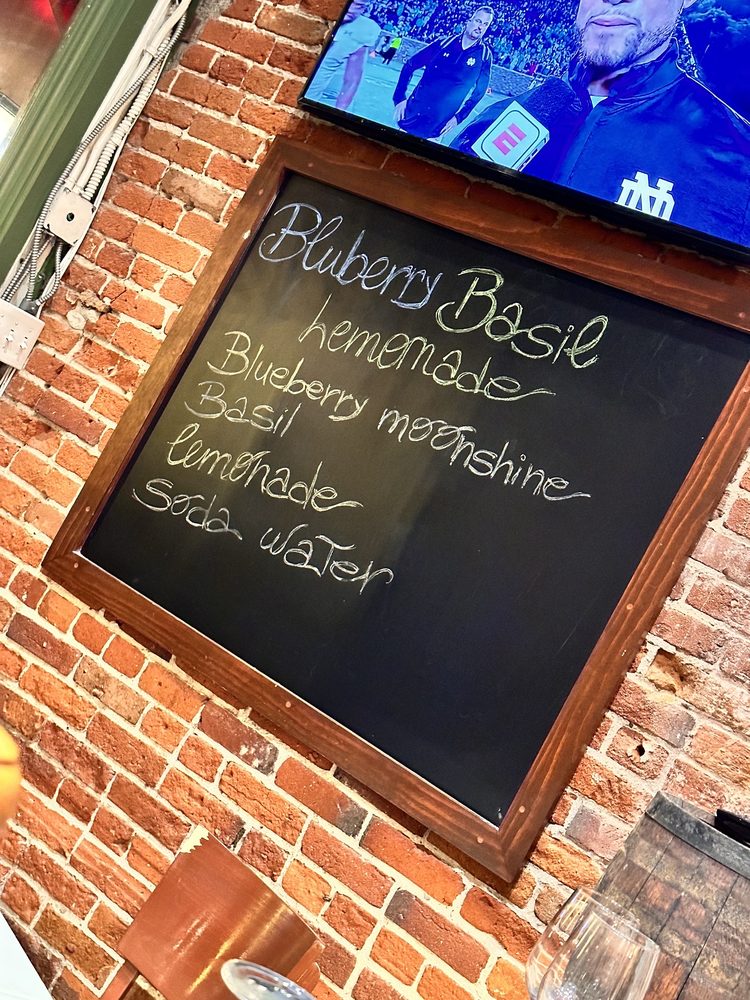 E
ND
Bluberry Basil
Lemomade
Blueberry moonshine
Basil
lemonade
soda water